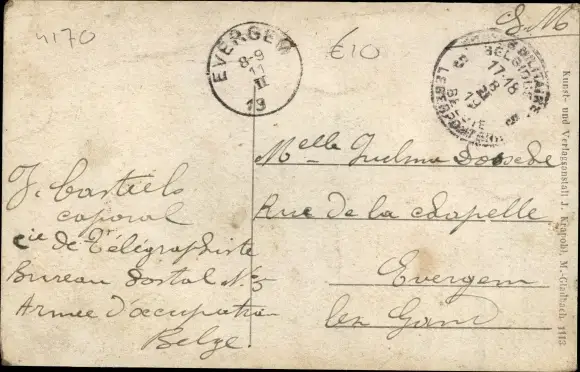 4170
€10
S.M.
EVERGEM
8-9
11
II
19
MILITAIRE
BELGIQUE
5
17-18
8
II
19
5
BELGIË
J. Castiels
caporal
Cie de Télégraphiste
Bureau Postal N.5
Armée d'occupation
Belge.
Melle Zulma
Rue de la Chapelle
Evergem
lez Gand
Kunst- und Verlagsanstalt J. Krapohl, M.-Gladbach. 1113